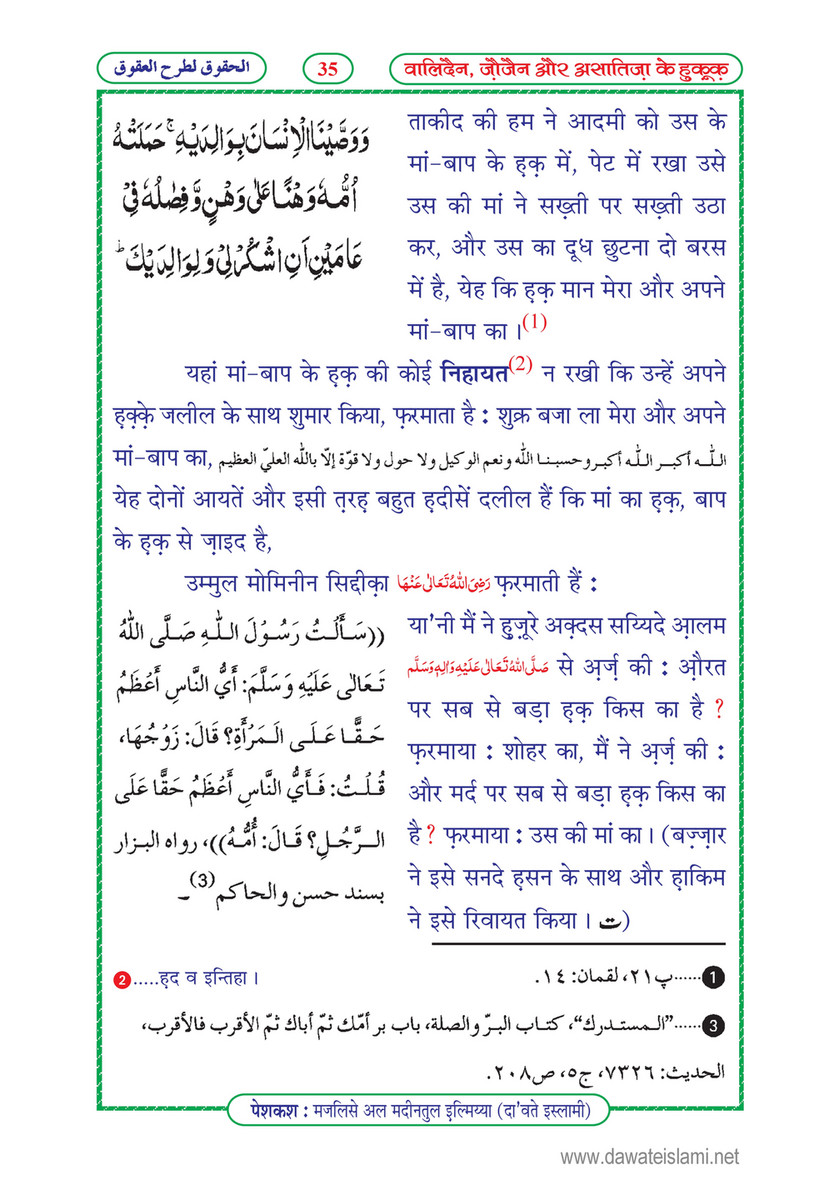 الحقوق لطرح العقوق
35
वालिदैन, ज़ौजैन और असातिज़ा के हुक़ूक़
وَوَصَّيْنَا الْاِنْسَانَ بِوَالِدَيْهِ ۚ حَمَلَتْهُ
اُمُّهٗ وَهْنًا عَلٰى وَهْنٍ وَّ فِصٰلُهٗ فِيْ
عَامَيْنِ اَنِ اشْكُرْ لِيْ وَ لِوَالِدَيْكَ ؕ
ताकीद की हम ने आदमी को उस के
मां-बाप के ह़क़ में, पेट में रखा उसे
उस की मां ने सख़्ती पर सख़्ती उठा
कर, और उस का दूध छुटना दो बरस
में है, येह कि ह़क़ मान मेरा और अपने
मां-बाप का ।(1)
यहां मां-बाप के ह़क़ की कोई निहायत(2) न रखी कि उन्हें अपने
ह़क़्क़े जलील के साथ शुमार किया, फ़रमाता है : शुक्र बजा ला मेरा और अपने
मां-बाप का, اللّٰه أكبر اللّٰه أكبر وحسبنا اللّٰه ونعم الوكيل ولا حول ولا قوّة إلّا باللّٰه العليّ العظيم
येह दोनों आयतें और इसी त़रह़ बहुत ह़दीसें दलील हैं कि मां का ह़क़, बाप
के ह़क़ से ज़ाइद है,
उम्मुल मोमिनीन सिद्दीक़ा رَضِیَ اللّٰهُ تَعَالٰی عَنْهَا फ़रमाती हैं :
((سَأَلْتُ رَسُوْلَ اللّٰهِ صَلَّى اللّٰهُ
تَعَالٰى عَلَيْهِ وَسَلَّمَ: أَيُّ النَّاسِ أَعْظَمُ
حَقًّا عَلَى الْمَرْأَةِ؟ قَالَ: زَوْجُهَا،
قُلْتُ: فَأَيُّ النَّاسِ أَعْظَمُ حَقًّا عَلَى
الرَّجُلِ؟ قَالَ: أُمُّهُ))، رواه البزار
بسند حسن والحاكم(3)۔
या'नी मैं ने हुज़ूरे अक़्दस सय्यिदे आ़लम
صَلَّی اللّٰهُ تَعَالٰی عَلَیْهِ وَاٰلِهٖ وَسَلَّم से अ़र्ज़ की : औ़रत
पर सब से बड़ा ह़क़ किस का है ?
फ़रमाया : शोहर का, मैं ने अ़र्ज़ की :
और मर्द पर सब से बड़ा ह़क़ किस का
है ? फ़रमाया : उस की मां का । (बज़्ज़ार
ने इसे सनदे ह़सन के साथ और ह़ाकिम
ने इसे रिवायत किया । ت)
1......پ٢١، لقمان: ١٤.
2.....ह़द व इन्तिहा ।
3......"المستدرك"، كتاب البرّ والصلة، باب بر أمّك ثمّ أباك ثمّ الأقرب فالأقرب،
الحديث: ٧٣٢٦، ج٥، ص٢٠٨.
पेशकश : मजलिसे अल मदीनतुल इ़ल्मिय्या (दा'वते इस्लामी)
www.dawateislami.net